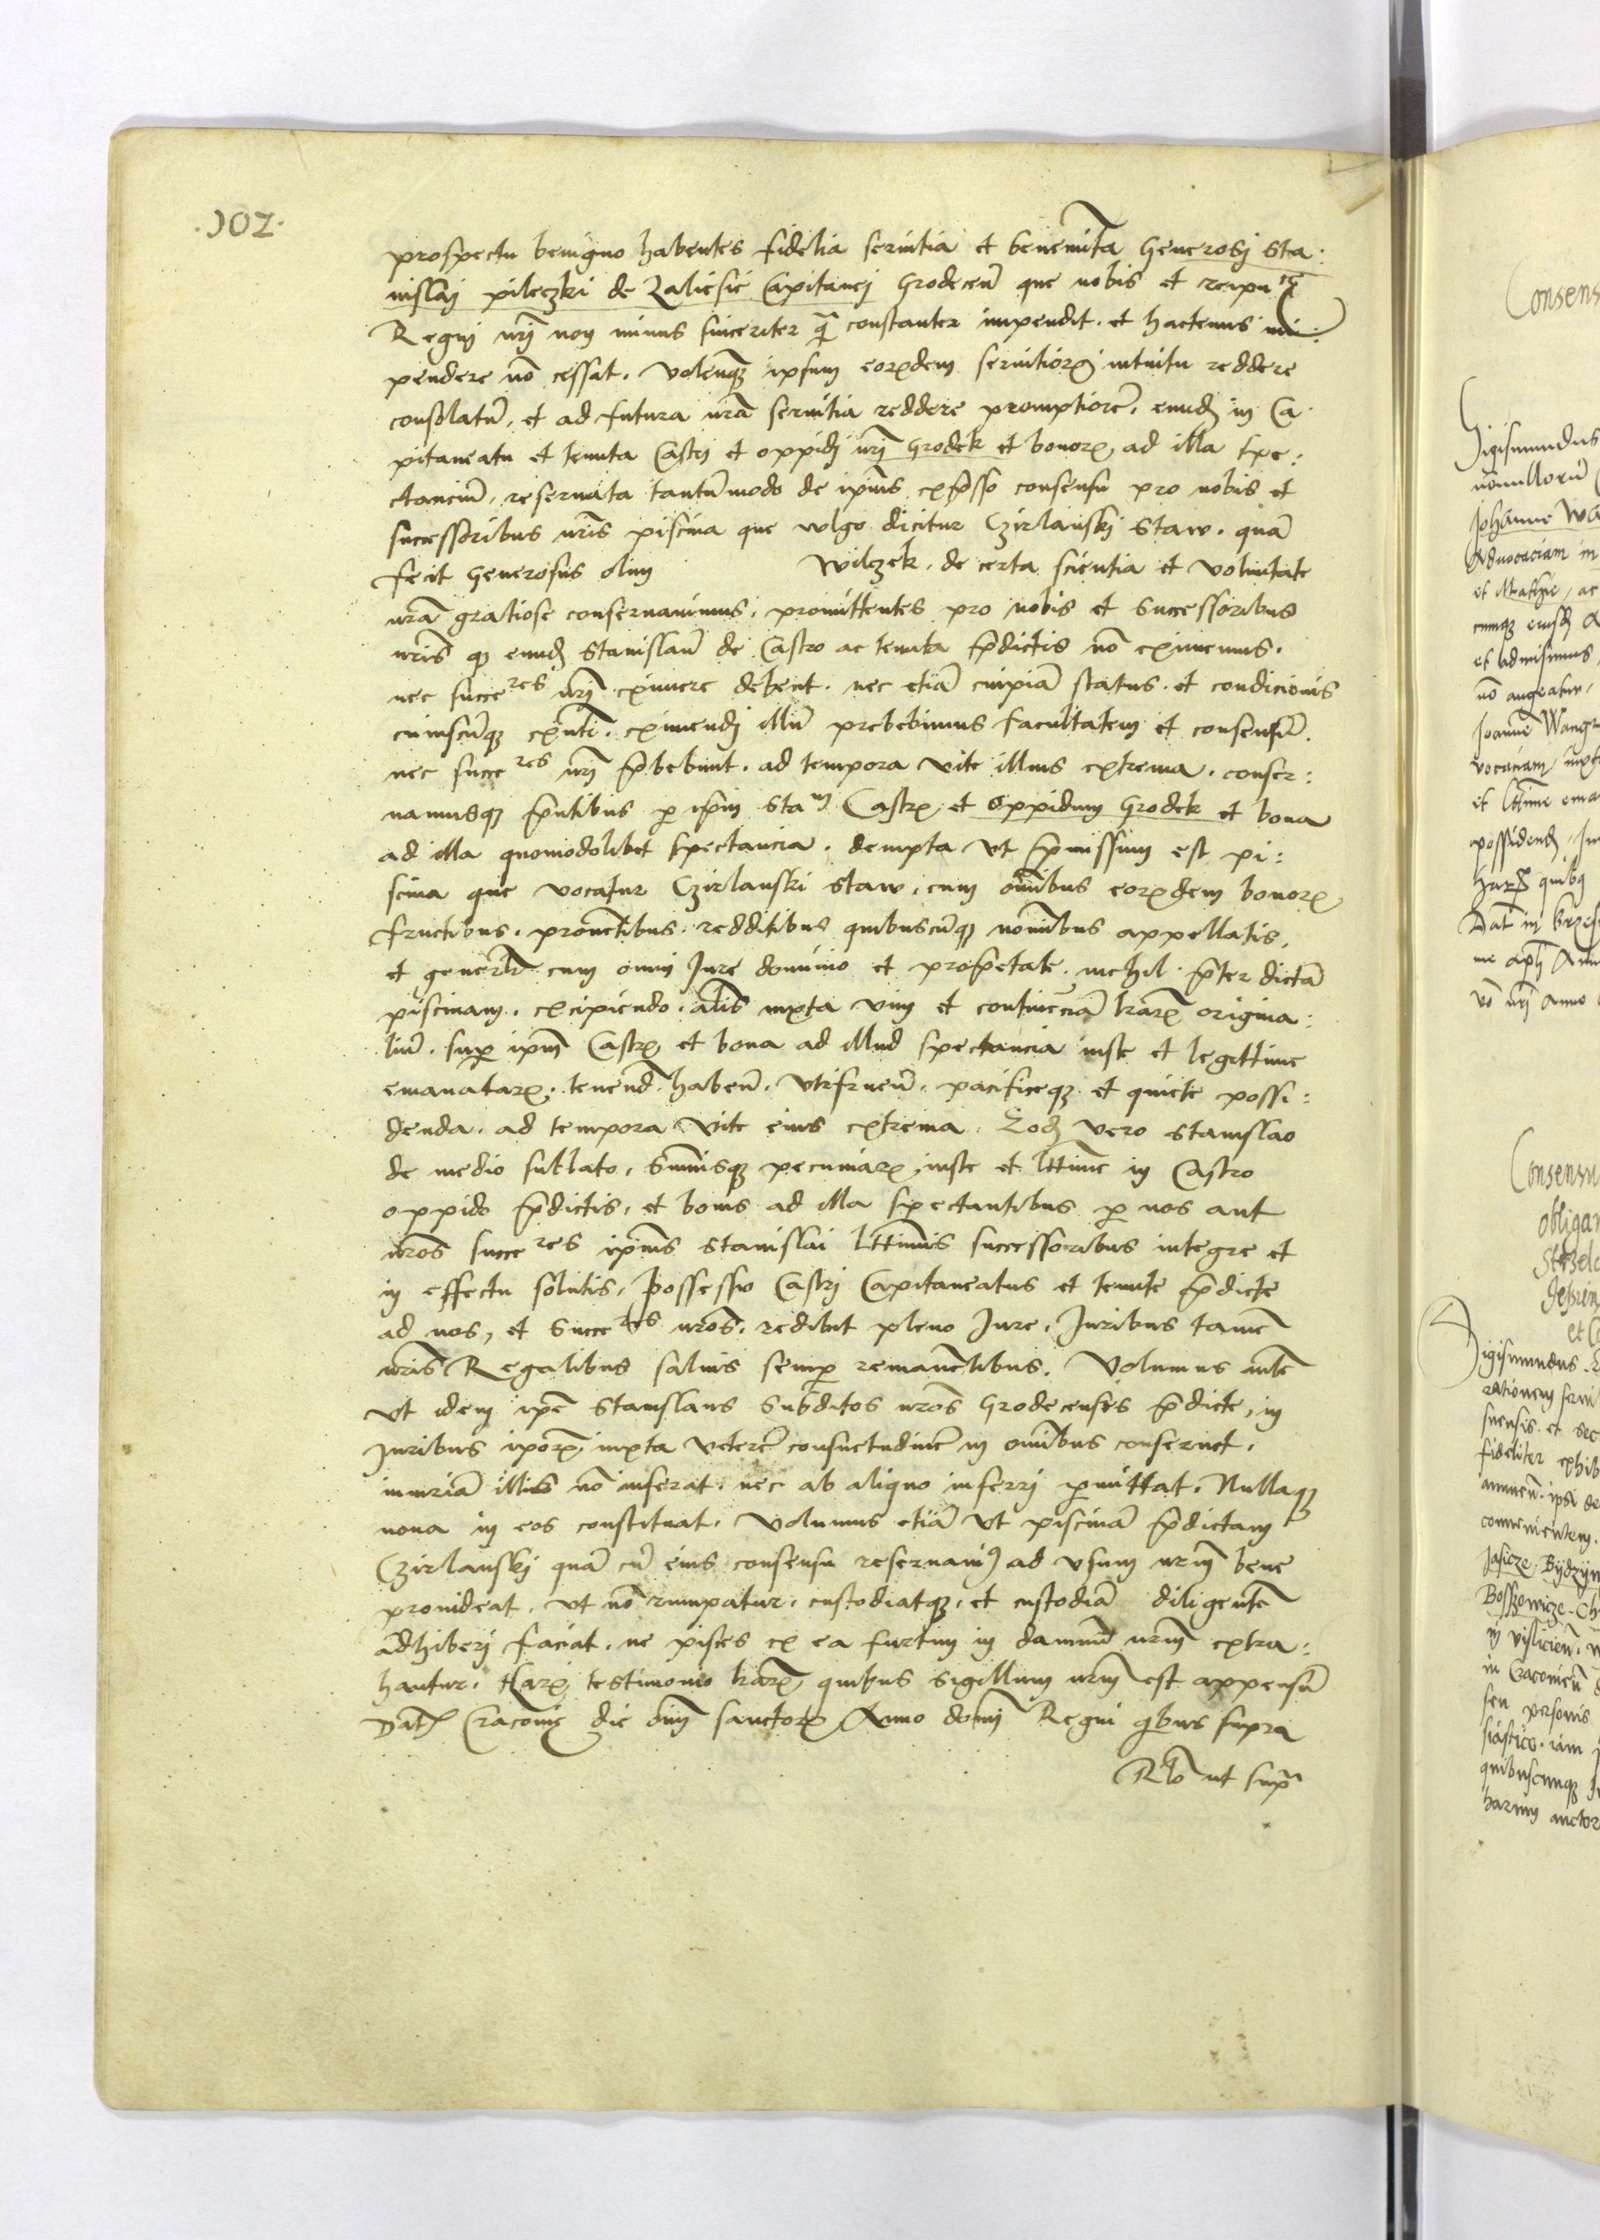 .102.
prospectu benigno habentes fidelia seruitia et benemīta Generosi Sta:
nislaj pileczki de Zaliesie Capitanej Grodeceñ que nobis et reipu^ce
Regni nrj non minus sinceriter q̃ constanter impendit. et hactenus im:
pendere nō cessat. Volentesq₃ ipsum eorꝫdem seruitiorꝫ intuitu reddere
consolatū, et ad futura nrā seruitia reddere promptiorē, eund̃ in Ca:
pitaneatu et tenuta Castrj et oppidj nrj Grodek et bonorꝫ ad illa spe:
ctanciū, reseruata tantūmodo de ipius exp̄sso consensu pro nobis et
successoribus nris piscina que vulgo dicitur Czirlanskj Staw. quā
fecit Generosus olim Wilczek. de certa scientia et voluntate
nrā gratiose conseruauimus. promittentes pro nobis et Successoribus
nris q₃ eund̃ Stanislaū de Castro ac tenuta p̄dictis nō eximemus.
nec succe^res nrj eximere debent. nec etiā cuipiā status. et condicionis
cuiuscūq₃ exn̄ti. eximendj illū prebebimus facultatem et consensū.
nec succe^res nrj p̄bebunt. ad tempora vite illius extrema. conser:
uamusq₃ p̄ntibus p ipm̄ Sta^um Castrꝫ et Oppidum Grodek et bona
ad illa quomodolibet spectancia. dempta ut p̄missum est pi:
scina que vocatur Czirlanski Staw, cum om̄ibus eorꝫdem bonorꝫ
fructibus. prouētibus. redditibus quibuscūq₃ nominibus appellatis,
et gener̄lr cum omni Jure dominio et prop̄etate. nichil p̄ter dictā
piscinam. excipiendo. al̄is iuxta vim et continēciā l̄rarꝫ origina:
liū. sup̱ ipm̄ Castrꝫ et bona ad illud spectancia iuste et legittime
emanatarꝫ. tenend̃. habeñ. Vtifrueñ. pacificeq₃ et quiete possi:
denda. ad tempora vite eius extrema. Eod̃ vero Stanislao
de medio sublato, Sum̄isq₃ pecuniarꝫ iuste et l̄ttime in Castro
oppido p̄dictis, et bonis ad illa spectantibus p nos aut
nros succe^res ipius Stanislai l̄ttimis successoribus integre et
in effectu solutis, Possessio Castrj Capitaneatus et tenute p̄dicte
ad nos, et Succe^res nros. redibit pleno Jure. Juribus tamē
nris Regalibus saluis semp̱ remanētibus. Volumus autē
Vt idem ip̄e Stanislaus Subditos nros Grodecenses p̄dicte, in
Juribus ip̄orꝫ iuxta Veterē consuetudinē in om̄ibus conseruet.
iniuriā illis nō inferat. nec ab aliquo inferrj p̱mittat. Nullaq₃
noua in eos constituat. Volumus etiā Vt piscinā p̄dictam
Czirlanskj quā cū eius consensu reseruauimꝰ ad Vsum nrm̄ bene
prouideat, Vt nō rumpatur, custodiatq₃, et custodiā diligentē
adhiberj faciat. ne pisces ex ea furtim in damnū nrm̄ extra:
hantur. Harꝫ testimonio l̄rarꝫ quibus Sigillum nrm̄ est appensū
Dat̄ Cracovie die om̄ Sanctorꝫ Anno domi Regni qibus supra
Rl̄o ut sup̄ª
Consens
Sigismundus
nōnullorū
Johanne Wa
Aduocaciam in
et Mathie, ac
et admisimus
nō augeatur,
Joannē Wangr
uocaciam, iuxta
et l̄ttime ema
possidend̃.
harꝫ quibus
Dat̄ in
Consensu
obligan
Sigismundus
rationem serui
fideliter exhib
conuenientem.
Jasicze, Bydzÿn
Bossowicze
in visliciēn̄.
in Cracouień
seu personis
siastico. iam
quibuscunq₃
harum auctor